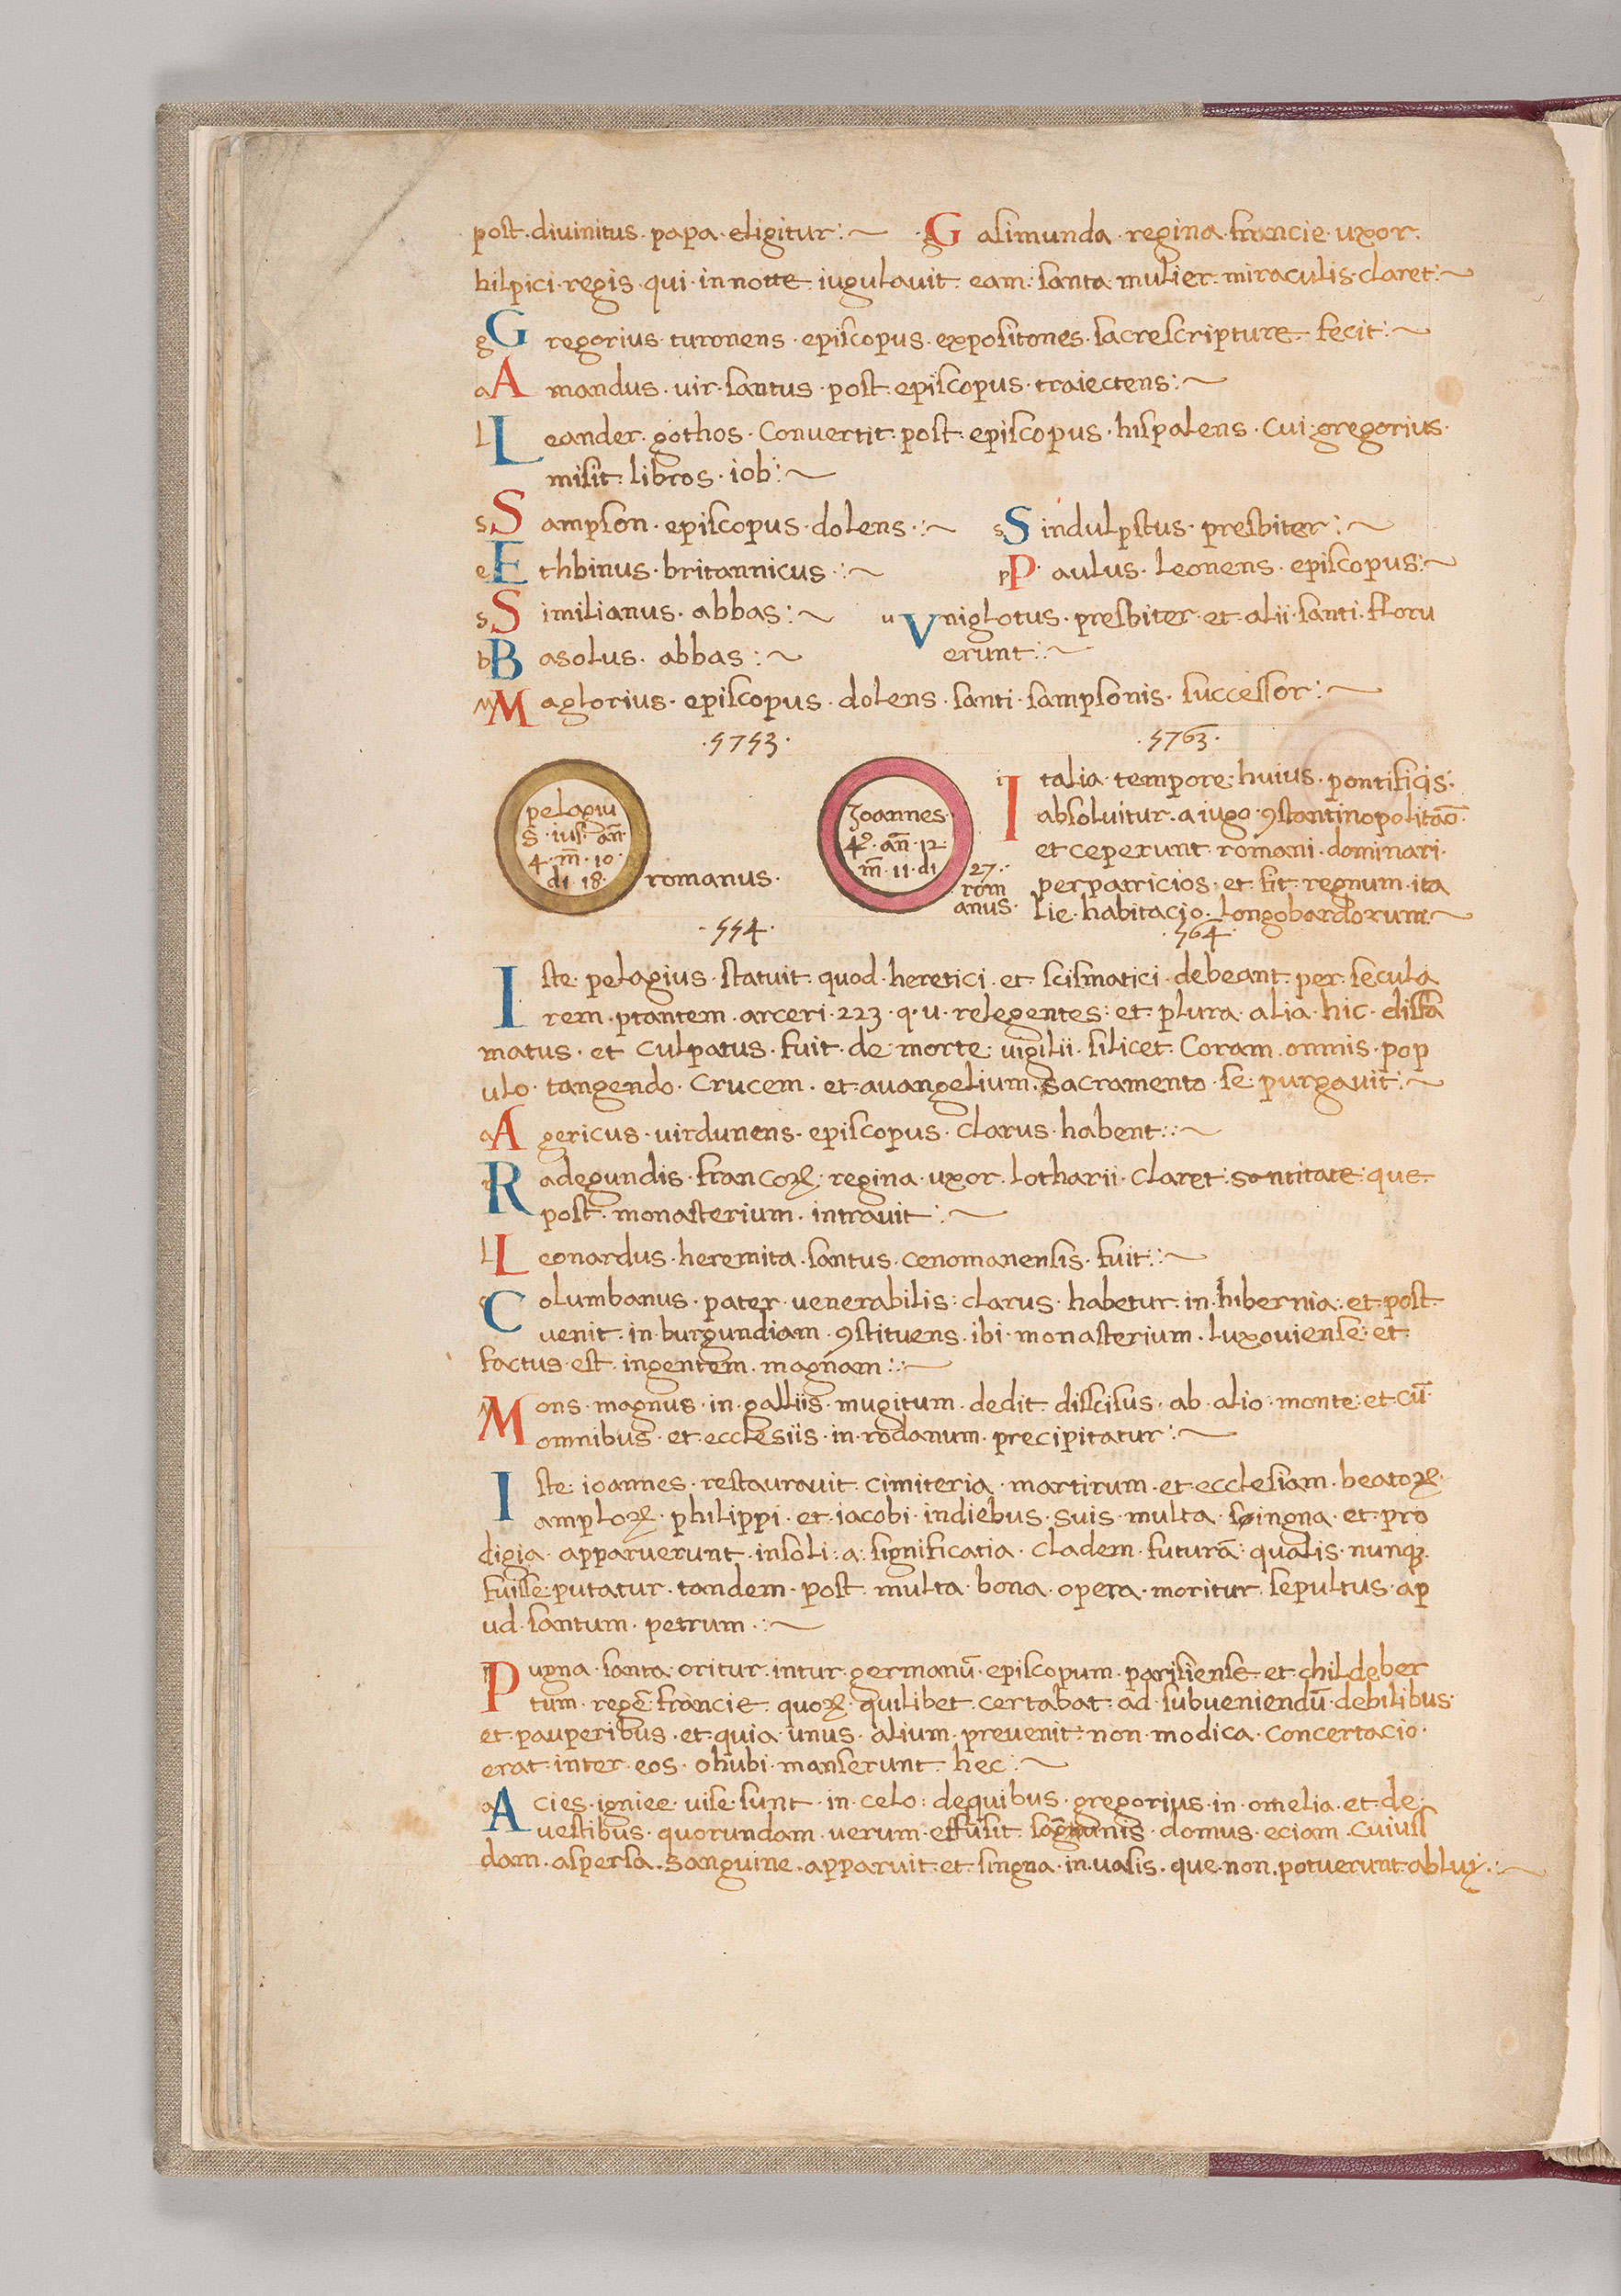 post · divinitus · papa · eligitur :~ · G alimunda · regina · francie · uxor ·
hilpici · regis · qui · in notte · iugulavit · eam : santa mulier · miraculis · claret :~
g G regorius · turonens · episcopus · expositones · sacre scripture · fecit :~
a A mandus · vir · santus · post · episcopus · traiectens :~
l L eander · gothos · convertit · post · episcopus · hispalens · cui · gregorius ·
misit · libros · iob :~
s S ampson · episcopus · dolens :~ s S indulpstus · presbiter :~
e E thbinus · britannicus :~ p P aulus · leonens · episcopus :~
s S imilianus · abbas :~ u V niglotus · presbiter · et · alii · santi · floru
b B asolus · abbas :~ erunt :~
M aglorius · episcopus · dolens · santi · sampsonis · successor :~
· 5753 · · 5763 ·
pelagiu
S · ius · an̄ ·
4 · m̄ · 10 ·
di · 18 · romanus ·
Joannes ·
4º · an̄ · 12 ·
m̄ · 11 · di 27 ·
rom
anus ·
i I talia · tempore · huius · pontificis ·
absolvitur · a iugo · 9stantinopolitāo ·
et ceperunt · romani · dominari ·
per patricios · et · fit · regnum · ita
lie · habitacio · longobardorum ~
· 554 · · 564 ·
I ste · pelagius · statuit · quod · heretici · et · scismatici · debeant · per · secula
rem · ptantem · arceri · 223 · q · u · relegentes : et · plura · alia · hic · diffa
matus · et culpatus · fuit · de · morte · vigilii · silicet · coram · omnis · pop
ulo · tangendo · crucem · et · avangelium · sacramento · se · purgavit :~
a A gericus · virdunens · episcopus · clarus · habent :~
R adegundis · francoꝝ · regina · uxor · lotharii · claret · santitate · que ·
post · monasterium · intravit :~
l L eonardus · heremita · santus · cenomanensis · fuit :~
C olumbanus · pater · venerabilis : clarus · habetur · in · hibernia · et · post ·
venit · in · burgundiam · 9stituens · ibi · monasterium · luxoviense · et ·
factus · est · ingentem · magnam :~
M ons · magnus · in · galliis · mugitum · dedit · discisus · ab · alio · monte · et · cū ·
omnibus · et · ecclesiis · in · rodanum · precipitatur :~
I ste · ioannes · restauravit · cimiteria · martirum · et · ecclesiam · beatoꝝ ·
amploꝝ · philippi · et · iacobi · in diebus · suis · multa · singna · et · pro
digia · apparuerunt · insoli : a : significatia · cladem · futurā : qualis · nunqꝫ ·
fuisse · putatur · tandem · post · multa · bona · opera · moritur · sepultus · ap
ud · santum · petrum :~
P ugna · santa · oritur · intur · germanū · episcopum · parisiense · et · childeber
tum · regē · francie · quoꝝ · quilibet · certabat · ad · subveniendū · debilibus ·
et · pauperibus · et · quia · unus · alium · prevenit · non · modica · concertacio ·
erat · inter · eos · ohubi · manserunt · hec :~
a A cies · igniee · vise · sunt · in · celo : de quibus · gregorius · in · omelia · et · de ·
vestibus · quorundam · verum · effusit · domus · eciam · cuiuss
dam · aspersa · sanguine · apparuit · et · singna · in · vasis · que · non · potuerunt · ablui :~